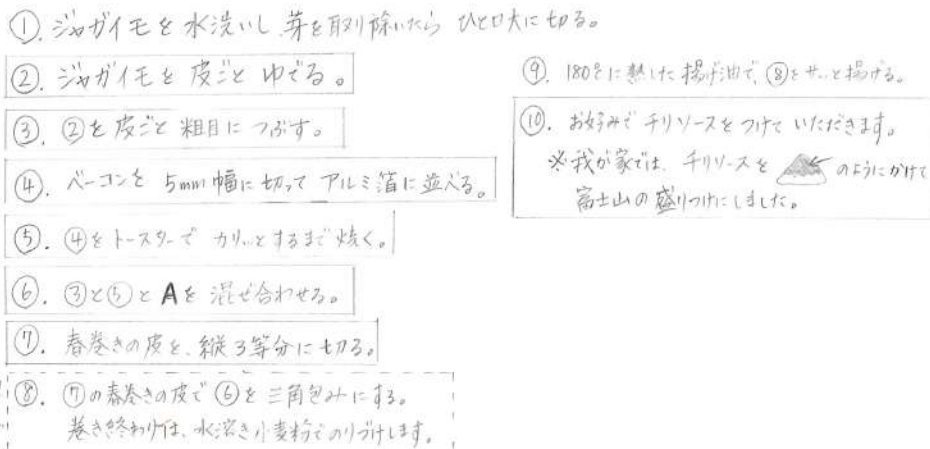 ①. ジャガイモを水洗いし、芽を取り除いたら ひと口大に切る。
②. ジャガイモを皮ごとゆでる。
③. ②を皮ごと粗目につぶす。
④. ベーコンを 5mm幅に切って アルミ箔に並べる。
⑤. ④をトースターで カリッとするまで焼く。
⑥. ③と⑤とAを混ぜ合わせる。
⑦. 春巻きの皮を、縦3等分に切る。
⑧. ⑦の春巻きの皮で⑥を三角包みにする。
巻き終わりは、水溶き小麦粉でのりづけします。
⑨. 180℃に熱した揚げ油で、⑧をサッと揚げる。
⑩. お好みでチリソースをつけていただきます。
※我が家では、チリソースを のようにかけて
富士山の盛りつけにしました。